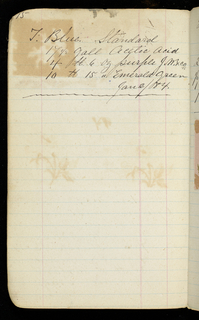 15
To Blue Standard
Gall Acetic Acid
4 lb 6 oz purple
10 lb 15 oz Emerald Green
Jan 8/84